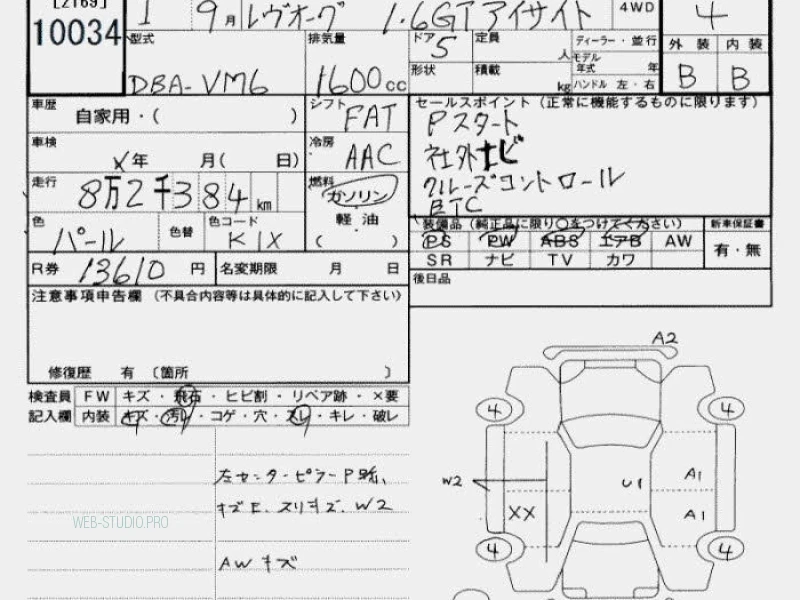 [2169]
10034
1 9月 レヴォーグ 1.6GTアイサイト 4WD 4
型式 DBA-VM6
排気量 1600cc
ドア 5
定員 人
ディーラー・並行
モデル年式 年
形状
積載 kg
ハンドル 左・右
外装 内装
B B
車歴 自家用・( )
シフト FAT
車検 X年 月( 日)
冷房 AAC
走行 8万2千384km
燃料 ガソリン
軽油
( )
色 パール
色替
色コード K1X
R券 13610円
名変期限 月 日
セールスポイント(正常に機能するものに限ります)
Pスタート
社外ナビ
クルーズコントロール
ETC
装備品(純正品に限り○をつけてください)
新車保証書
PS PW ABS エアB AW
有・無
SR ナビ TV カワ
後日品
注意事項申告欄 (不具合内容等は具体的に記入して下さい)
修復歴 有 〔箇所 〕
検査員 FW キズ・飛石・ヒビ割・リペア跡・×要
記入欄 内装 キズ・汚レ・コゲ・穴・スレ・キレ・破レ
左センターピラーP跡、
キズE、スリキズ、W2
AWキズ
WEB-STUDIO.PRO
A2
4 4
W2 U1 A1
XX A1
4 4